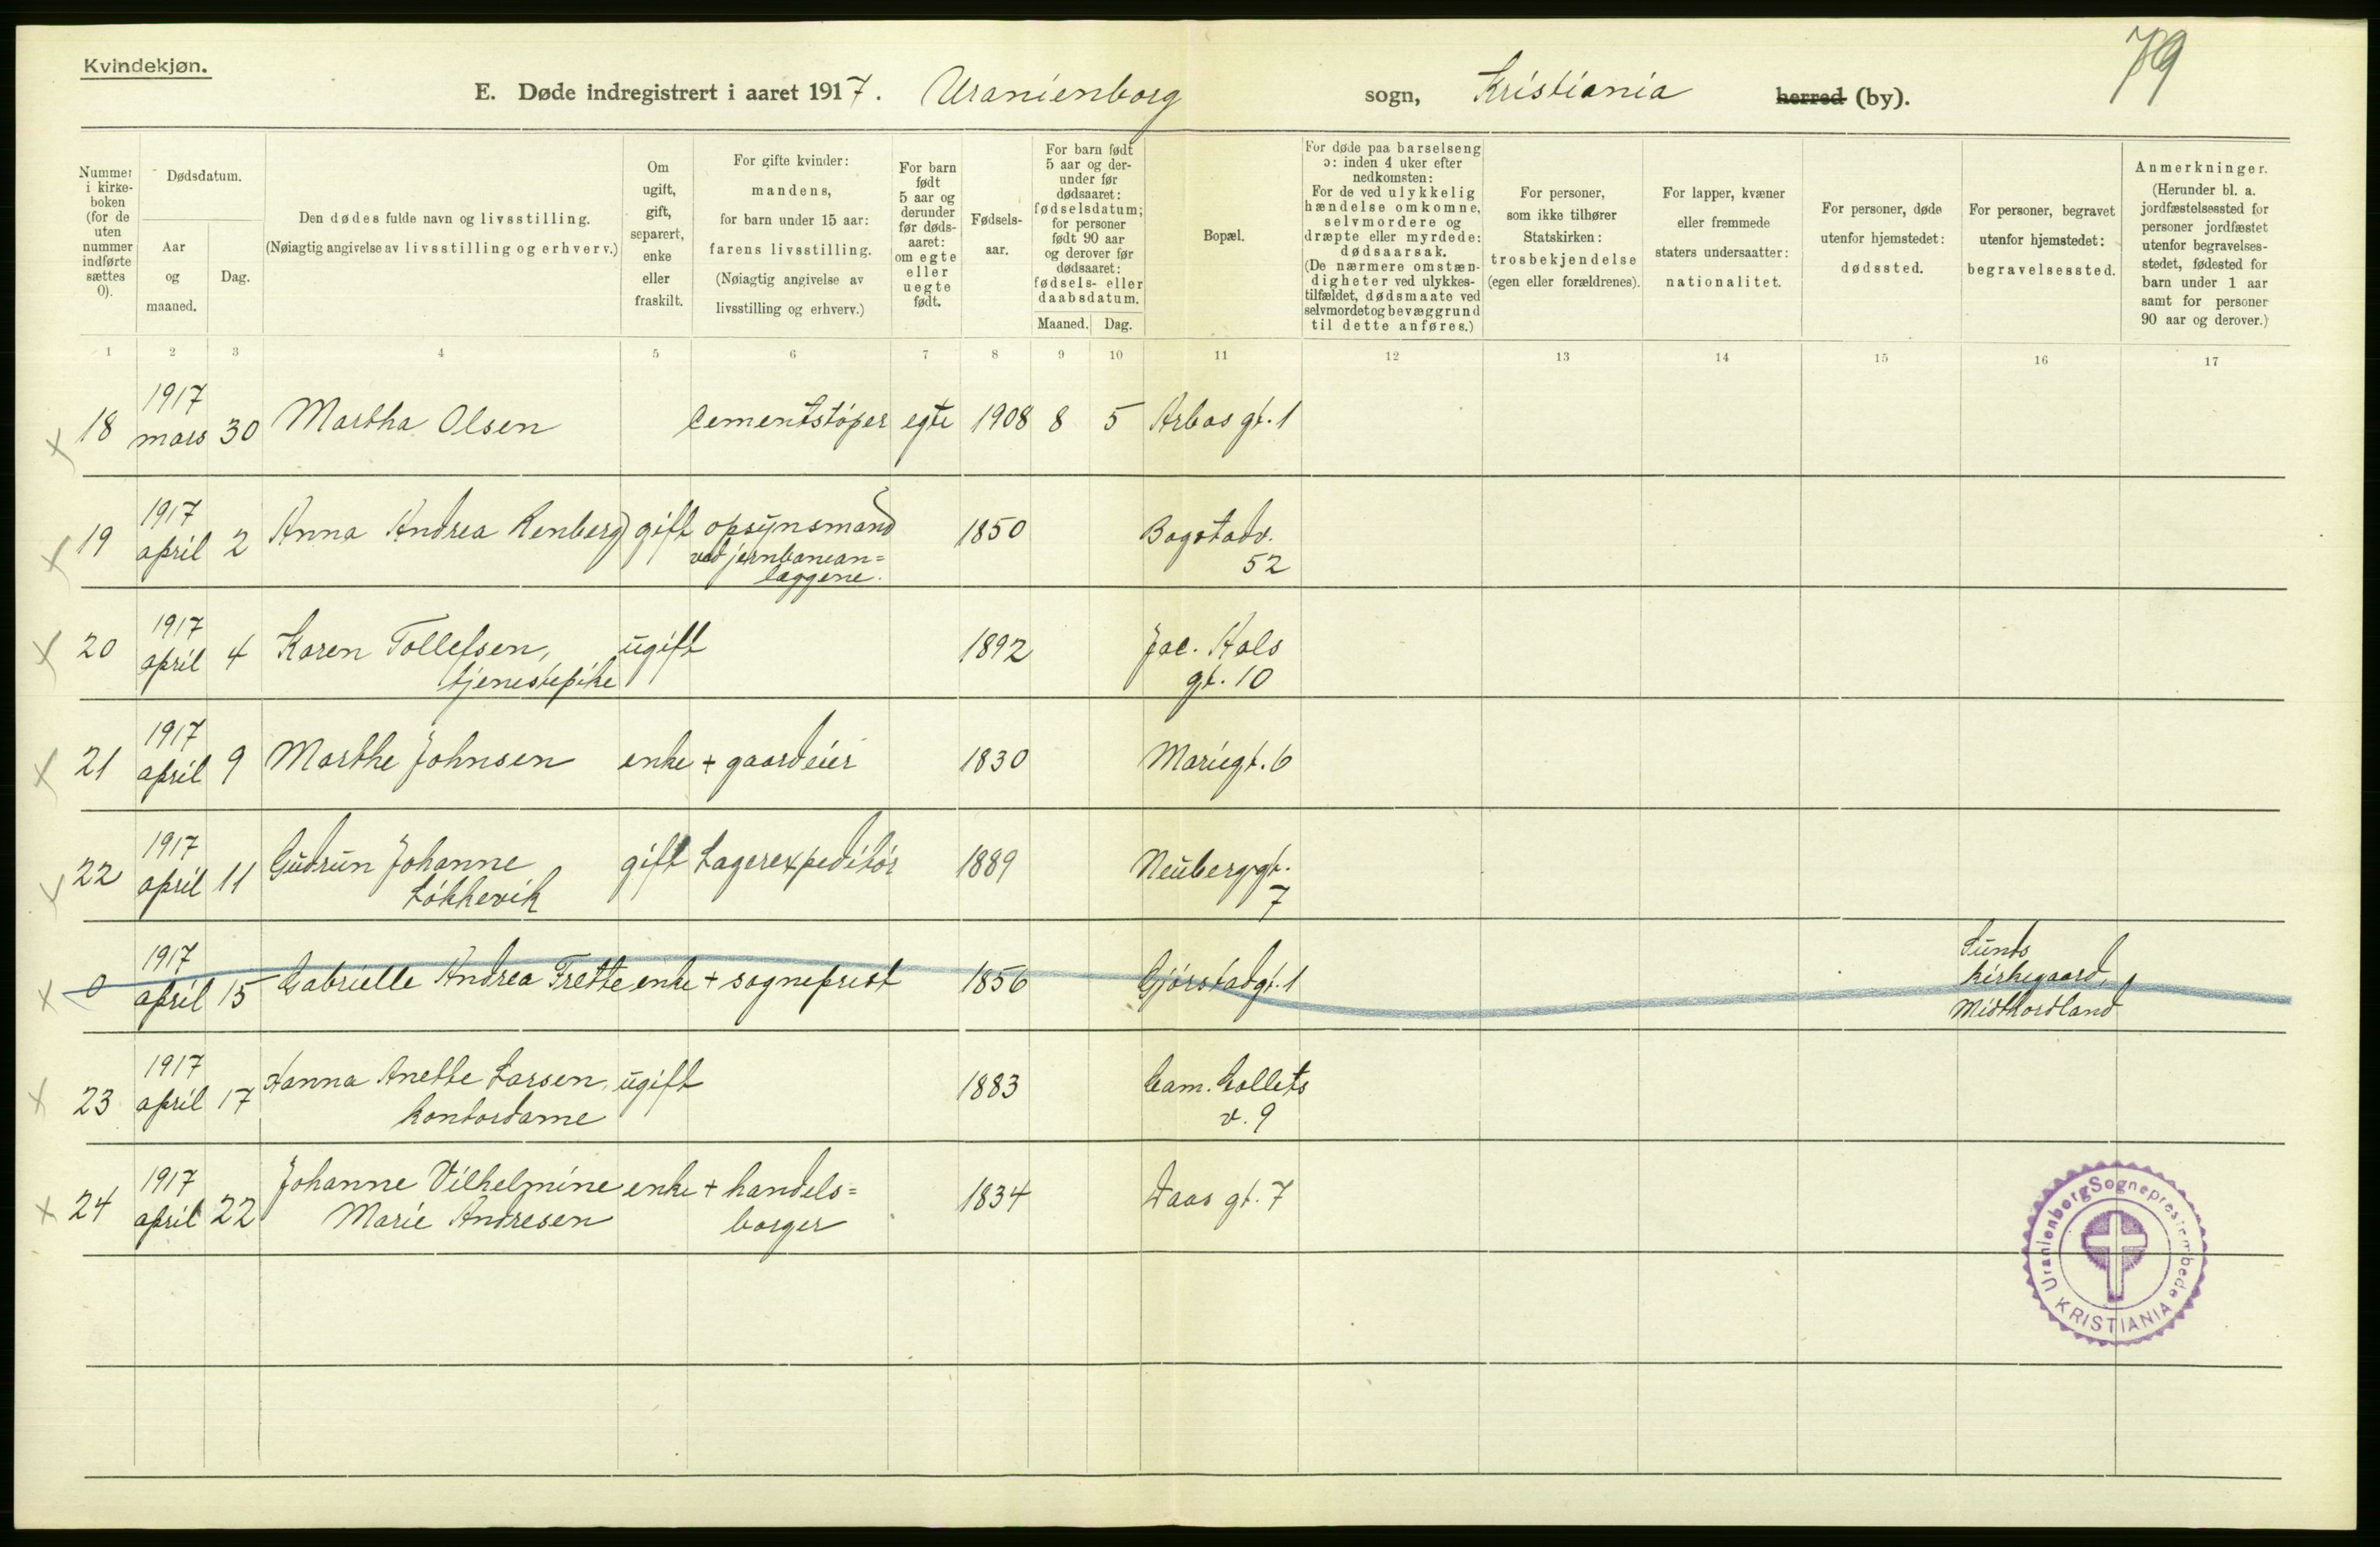 Kvindekjøn.
79
E. Døde indregistrert i aaret 1917. Uranienborg sogn, Kristiania herred (by).
Nummer i kirkeboken (for de uten nummer indførte sættes 0).
Dødsdatum.
Aar og maaned.
Dag.
Den dødes fulde navn og livsstilling.
(Nøiagtig angivelse av livsstilling og erhverv.)
Om ugift, gift, separert, enke eller fraskilt.
For gifte kvinder: mandens, for barn under 15 aar: farens livsstilling. (Nøiagtig angivelse av livsstilling og erhverv.)
For barn født 5 aar og derunder før dødsaaret: om egte eller uegte født.
Fødselsaar.
For barn født 5 aar og derunder før dødsaaret: fødselsdatum; for personer født 90 aar og derover før dødsaaret: fødsels- eller daabsdatum.
Maaned. Dag.
Bopæl.
For døde paa barselseng ɔ: inden 4 uker efter nedkomsten: For de ved ulykkelig hændelse omkomne, selvmordere og dræpte eller myrdede: dødsaarsak. (De nærmere omstændigheter ved ulykkestilfældet, dødsmaate ved selvmordet og bevæggrund til dette anføres.)
For personer, som ikke tilhører Statskirken: trosbekjendelse (egen eller forældrenes).
For lapper, kvæner eller fremmede staters undersaatter: nationalitet.
For personer, døde utenfor hjemstedet: dødssted.
For personer, begravet utenfor hjemstedet: begravelsessted.
Anmerkninger. (Herunder bl. a. jordfæstelsessted for personer jordfæstet utenfor begravelsesstedet, fødested for barn under 1 aar samt for personer 90 aar og derover.)
1 2 3 4 5 6 7 8 9 10 11 12 13 14 15 16 17
1917
18 mars 30 Martha Olsen Cementstøper egte 1908 8 5 Arbos gt. 1
1917
19 april 2 Anna Andrea Renberg gift opsynsmand 1850 Bogstadv.
ved jernbanean=
læggene. 52
1917
20 april 4 Karen Tollefsen, ugift 1892 Jac. Hals
tjenestepike gt. 10
1917
21 april 9 Marthe Johnsen enke + gaardeier 1830 Mariegt. 6
1917
22 april 11 Gudrun Johanne gift Lagerexpeditør 1889 Neuberggt.
Løkkevik 7
1917
0 april 15 Gabrielle Andrea Frette enke + sogneprest 1856 Gjørstadgt. 1 Sunds
kirkegaard,
Midthordland
1917
23 april 17 Hanna Anette Larsen, ugift 1883 Cam. Collets
kontordame v. 9
1917
24 april 22 Johanne Vilhelmine enke + handels= 1834 Daas gt. 7
Marie Andresen borger
Uranienborg Sogneprestembede
KRISTIANIA